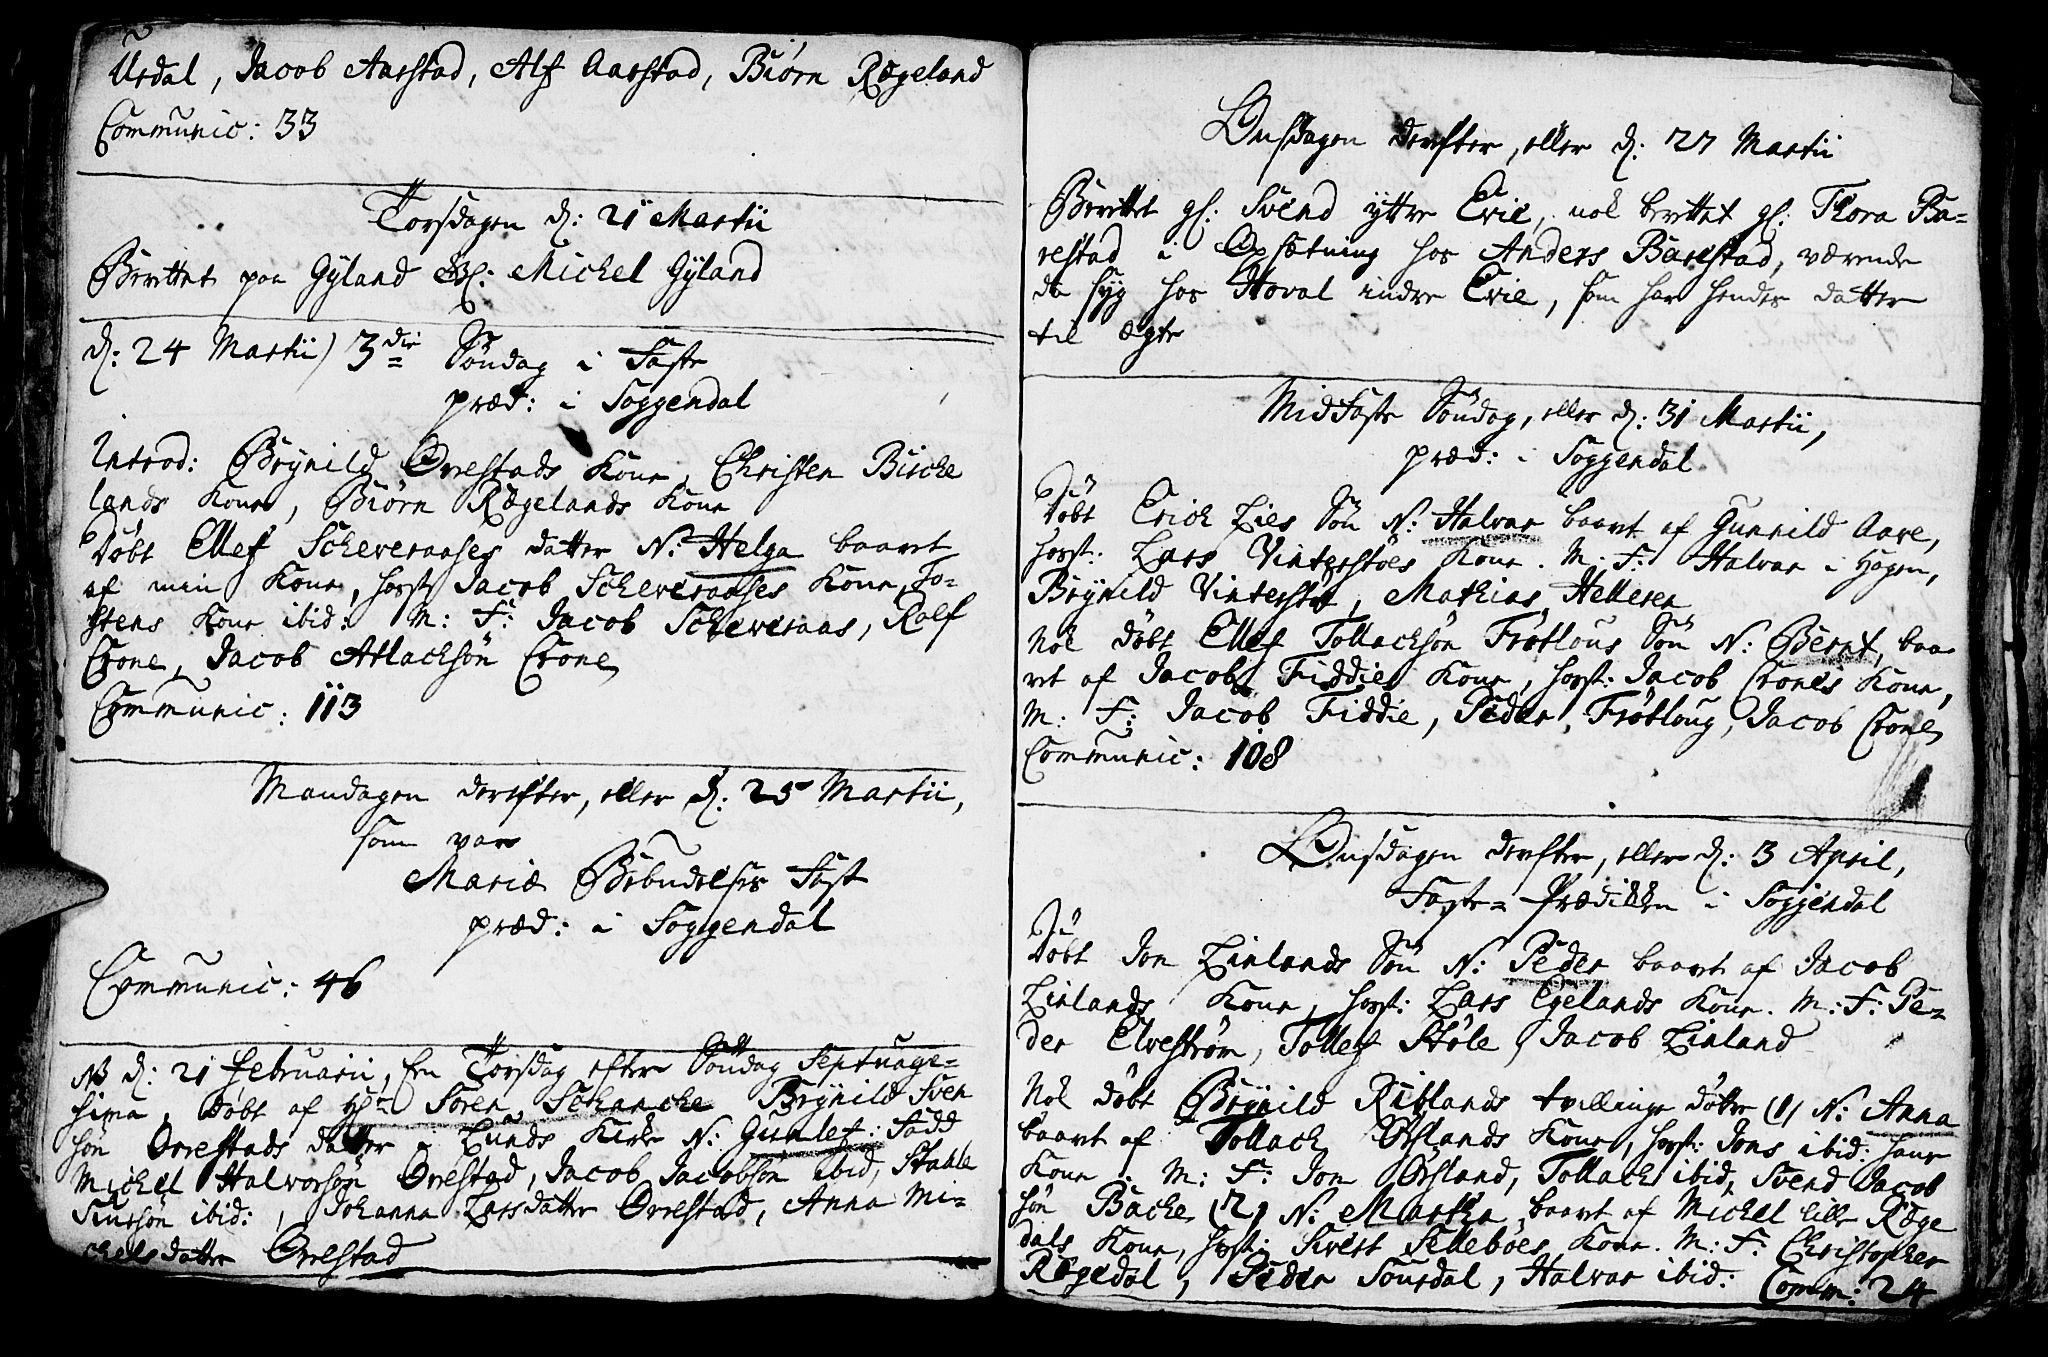 Urdal, Jacob Aarstad, Alf Aarstad, Biørn Rægeland
Communic: 33
Torsdagen d: 21 Martii
Berettet paa Gyland Michel Gyland
d: 24 Martii) 3die Söndag i Faste
præd: i Soggendal
Introd: Brÿnild Ørrestads Kone, Christen Bircke
lands Kone, Biørn Rægelands Kone
Döbt Ellef Scheveraases datter N: Helga baaret
af min Kone, host Jacob Scheveraases Kone, To-
stens Kone ibid: M: F: Jacob Scheveraas, Rolf
Crone, Jacob Atlacksön Crone
Communic: 113
Mandagen derefter, eller d: 25 Martii,
som var
Mariæ Bebudelses Fest
præd: i Soggendal
Communic: 46
NB d: 21 Februarii, en Torsdag efter Söndag Septuage-
sima, döbt af Hr Sören Schancke Brÿnild Sven
sön Ørrestads datter i Lunds Kirke N: Gunlef: Fadd
Michel Halvorsön Ørrestad, Jacob Jacobsön ibid, Staale
Siursön ibid:, Johanna Larsdatter Ørrestad, Anna Mi-
chelsdatter Ørrestad
Onsdagen derefter, eller d: 27 Martii
Berettet gl: Svend ÿttre Evie, nok berettet gl: Thora Ba-
restad i Opsætning hos Anders Barestad, værende
da syg hos Hoval indre Evie, som har hendes datter
til ægte
MidFaste Söndag, eller d: 31 Martii,
præd: i Soggendal
Döbt Erich Lies Sön N: Halvar baaret af Gunnild Aare,
host: Lars Vinterstöes Kone. M: F: Halvar i Hagen,
Brÿnild Vinterstö, Mathias Helleren
Nok döbt Ellef Tollacksön Frötlous Sön N: Bernt, baa
ret af Jacob Fiddies Kone, host: Jacob Crones Kone,
M: F: Jacob Fiddie, Peder Frötloug, Jacob Crone
Communic: 108
Onsdagen derefter, eller d: 3 April,
Faste-Prædiken i Soggendal
Döbt Jon Linlands Sön N: Peder baaret af Jacob
Linlands Kone, host: Lars Egelands Kone. M: F: Pe-
der Elveström, Tollef Støle, Jacob Linland
Nok döbt Brÿnild Riblands tvillinge döttre (1) N: Anna
baaret af Tollack Ørslands Kone, host: Jons ibid: hans
Kone. M: F: Jon Ørsland, Tollack ibid, Svend Jacob
sön Backe (2) N: Martha, baaret af Michel lille Ræge
dals Kone, host: Sivert Selleböes Kone. M: F: Christopher
Rægedal, Peder Sourdal, Halvar ibid: Comm: 24